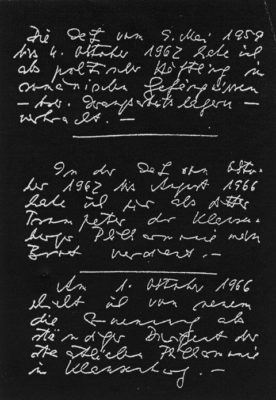 Die Zeit vom 5. Mai 1958
bis 4. Oktober 1962 habe ich
als politischer Häftling in
rumänischen Gefängnissen
- bzw. Zwangsarbeitslagern -
verbracht. -
In der Zeit von Okto-
ber 1962 bis August 1966
habe ich mir als dritter
Trompeter der Klausen-
burger Philharmonie mein
Brot verdient. -
Am 1. Oktober 1966
erhielt ich von neuem
die Ernennung als
ständiger Dirigent der
staatlichen Philharmonie
in Klausenburg. -